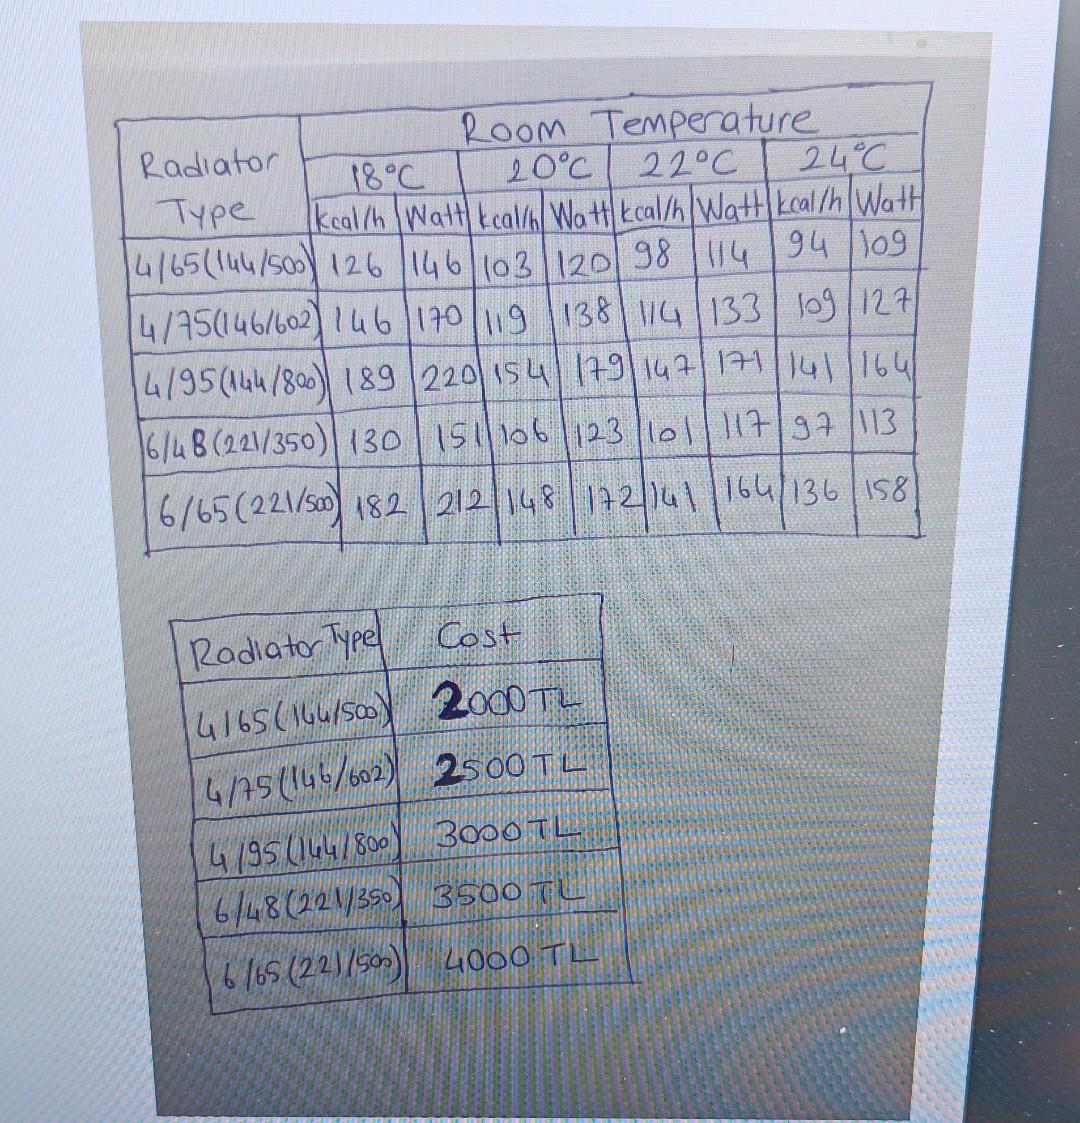 Room Temperature
Radiator Type
18°C 20°C 22°C 24°C
kcal/h Watt kcal/h Watt kcal/h Watt kcal/h Watt
4/65(144/500) 126 146 103 120 98 114 94 109
4/75(146/602) 146 170 119 138 114 133 109 127
4/95(144/800) 189 220 154 179 147 171 141 164
6/48(221/350) 130 151 106 123 101 117 97 113
6/65(221/500) 182 212 148 172 141 164 136 158
Radiator Type Cost
4/65(144/500) 2000 TL
4/75(146/602) 2500 TL
4/95(144/800) 3000 TL
6/48(221/350) 3500 TL
6/65(221/500) 4000 TL